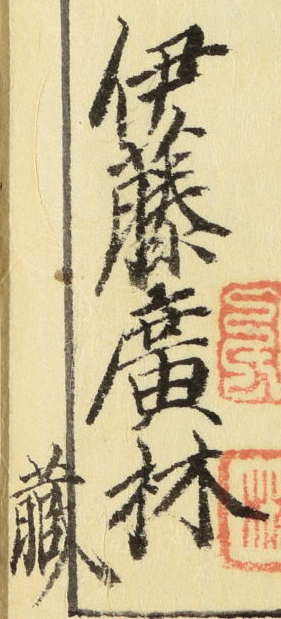 伊藤廣林
藏